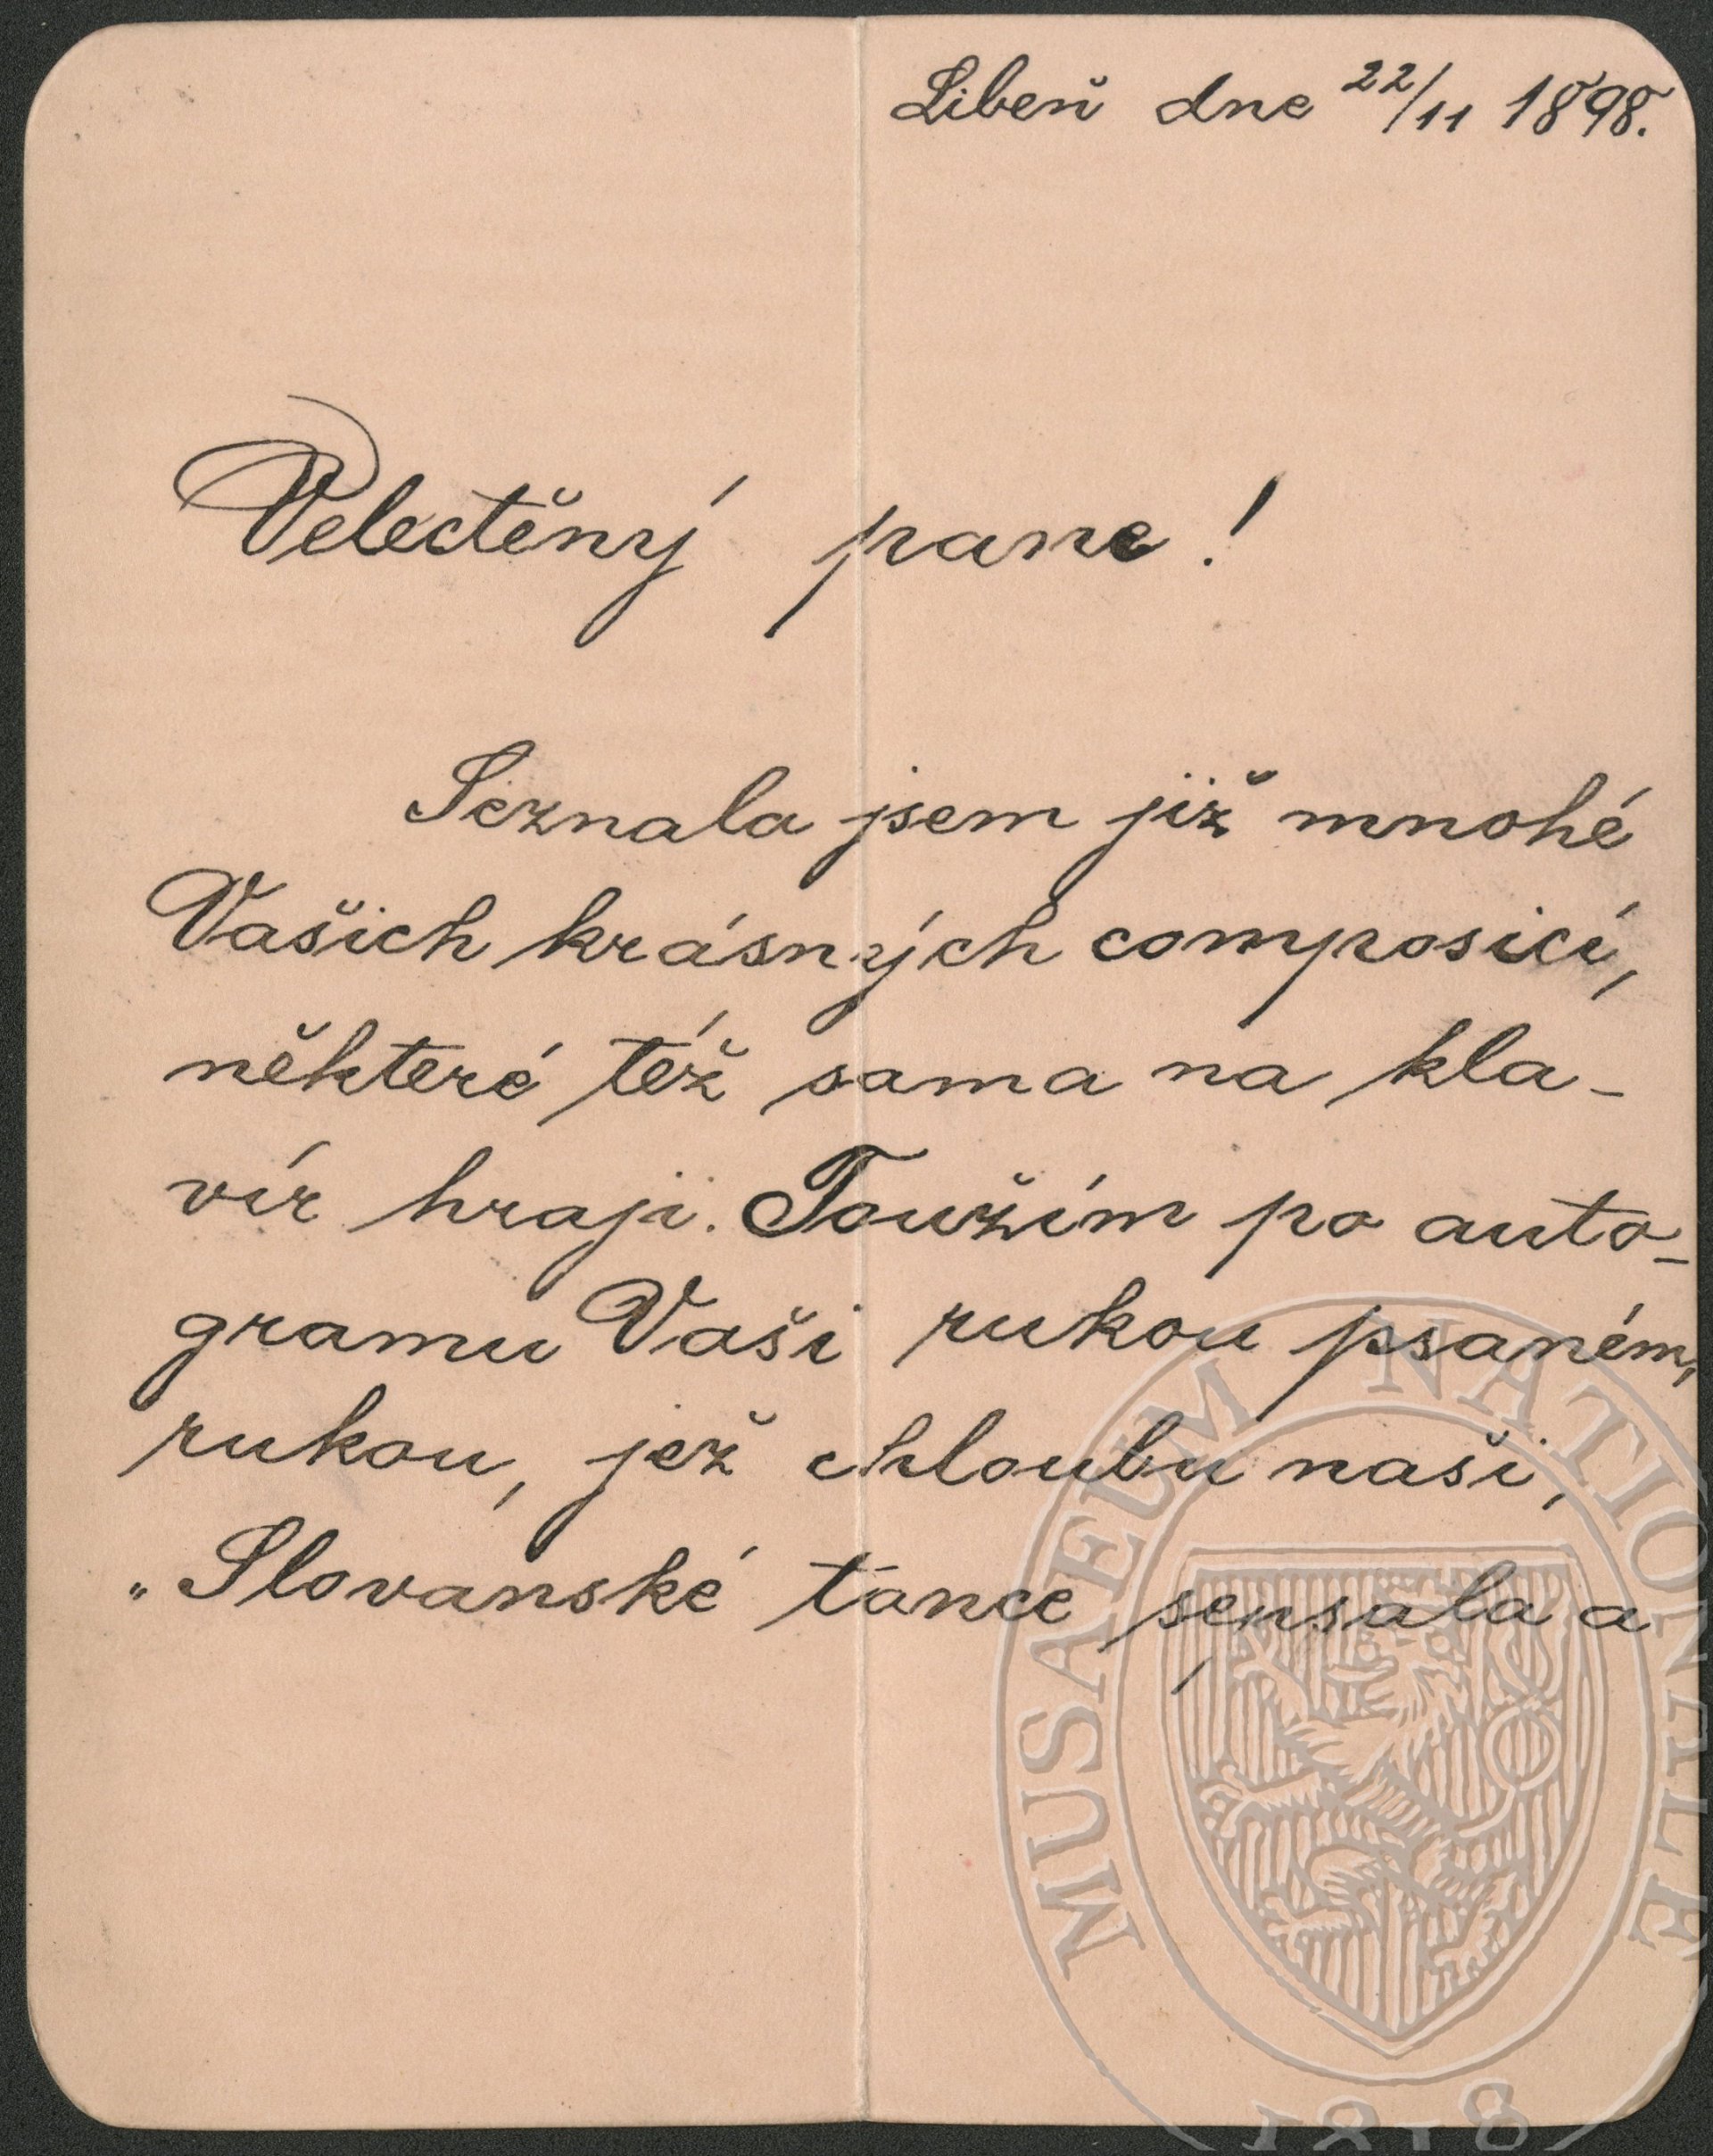 Libeň dne 22/11 1898.
Velectěný pane!
Seznala jsem již mnohé
Vašich krásných composicí,
některé též sama na kla-
vír hraji. Toužím po auto-
gramu Vaší rukou psaném,
rukou, jež chloubu naši,
„Slovanské tance sepsala a
MUSAEUM NATIONALE
1818